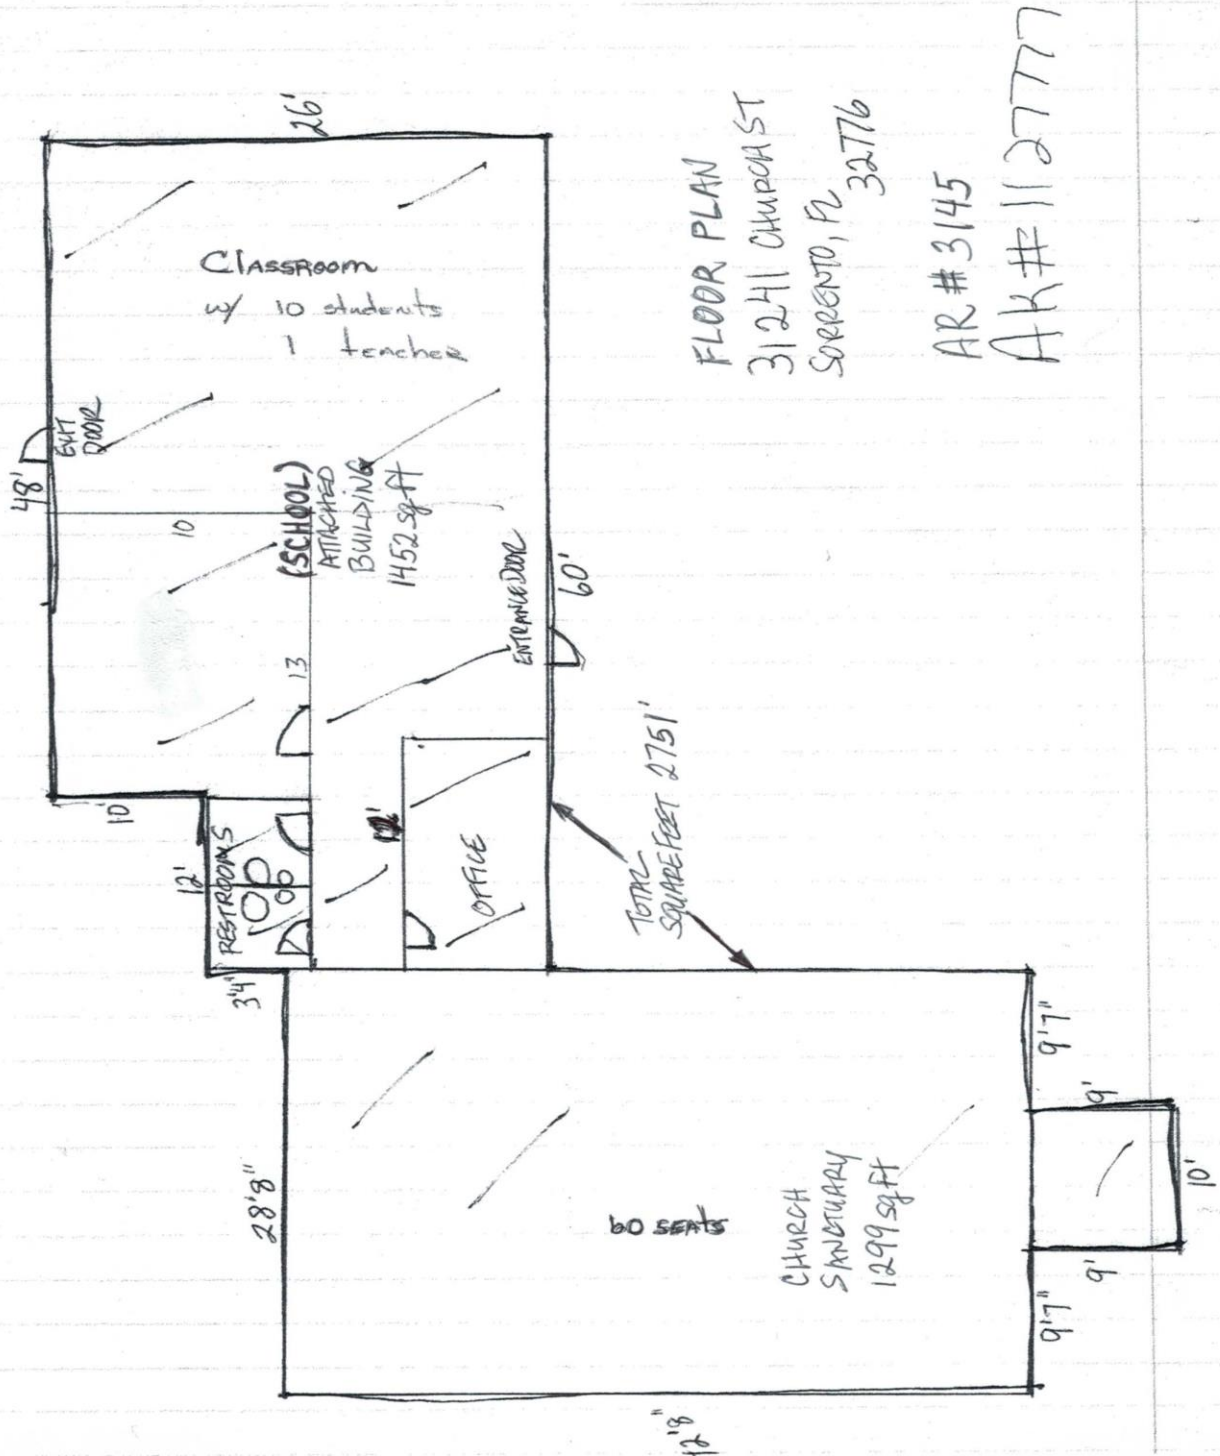 26'
Classroom
w/ 10 students
1 teacher
48'
EXIT
DOOR
10
(SCHOOL)
ATTACHED
BUILDING
1452 sq ft
13
ENTRANCE DOOR
60'
10
12'
RESTROOMS
OFFICE
3'4"
TOTAL
SQUARE FEET 2751'
28'8"
60 SEATS
CHURCH
SANCTUARY
1299 sq ft
9'7"
9'
10'
9'
9'7"
FLOOR PLAN
31241 CHURCH ST
SORRENTO, FL
32776
AR # 3145
AK # 1127777